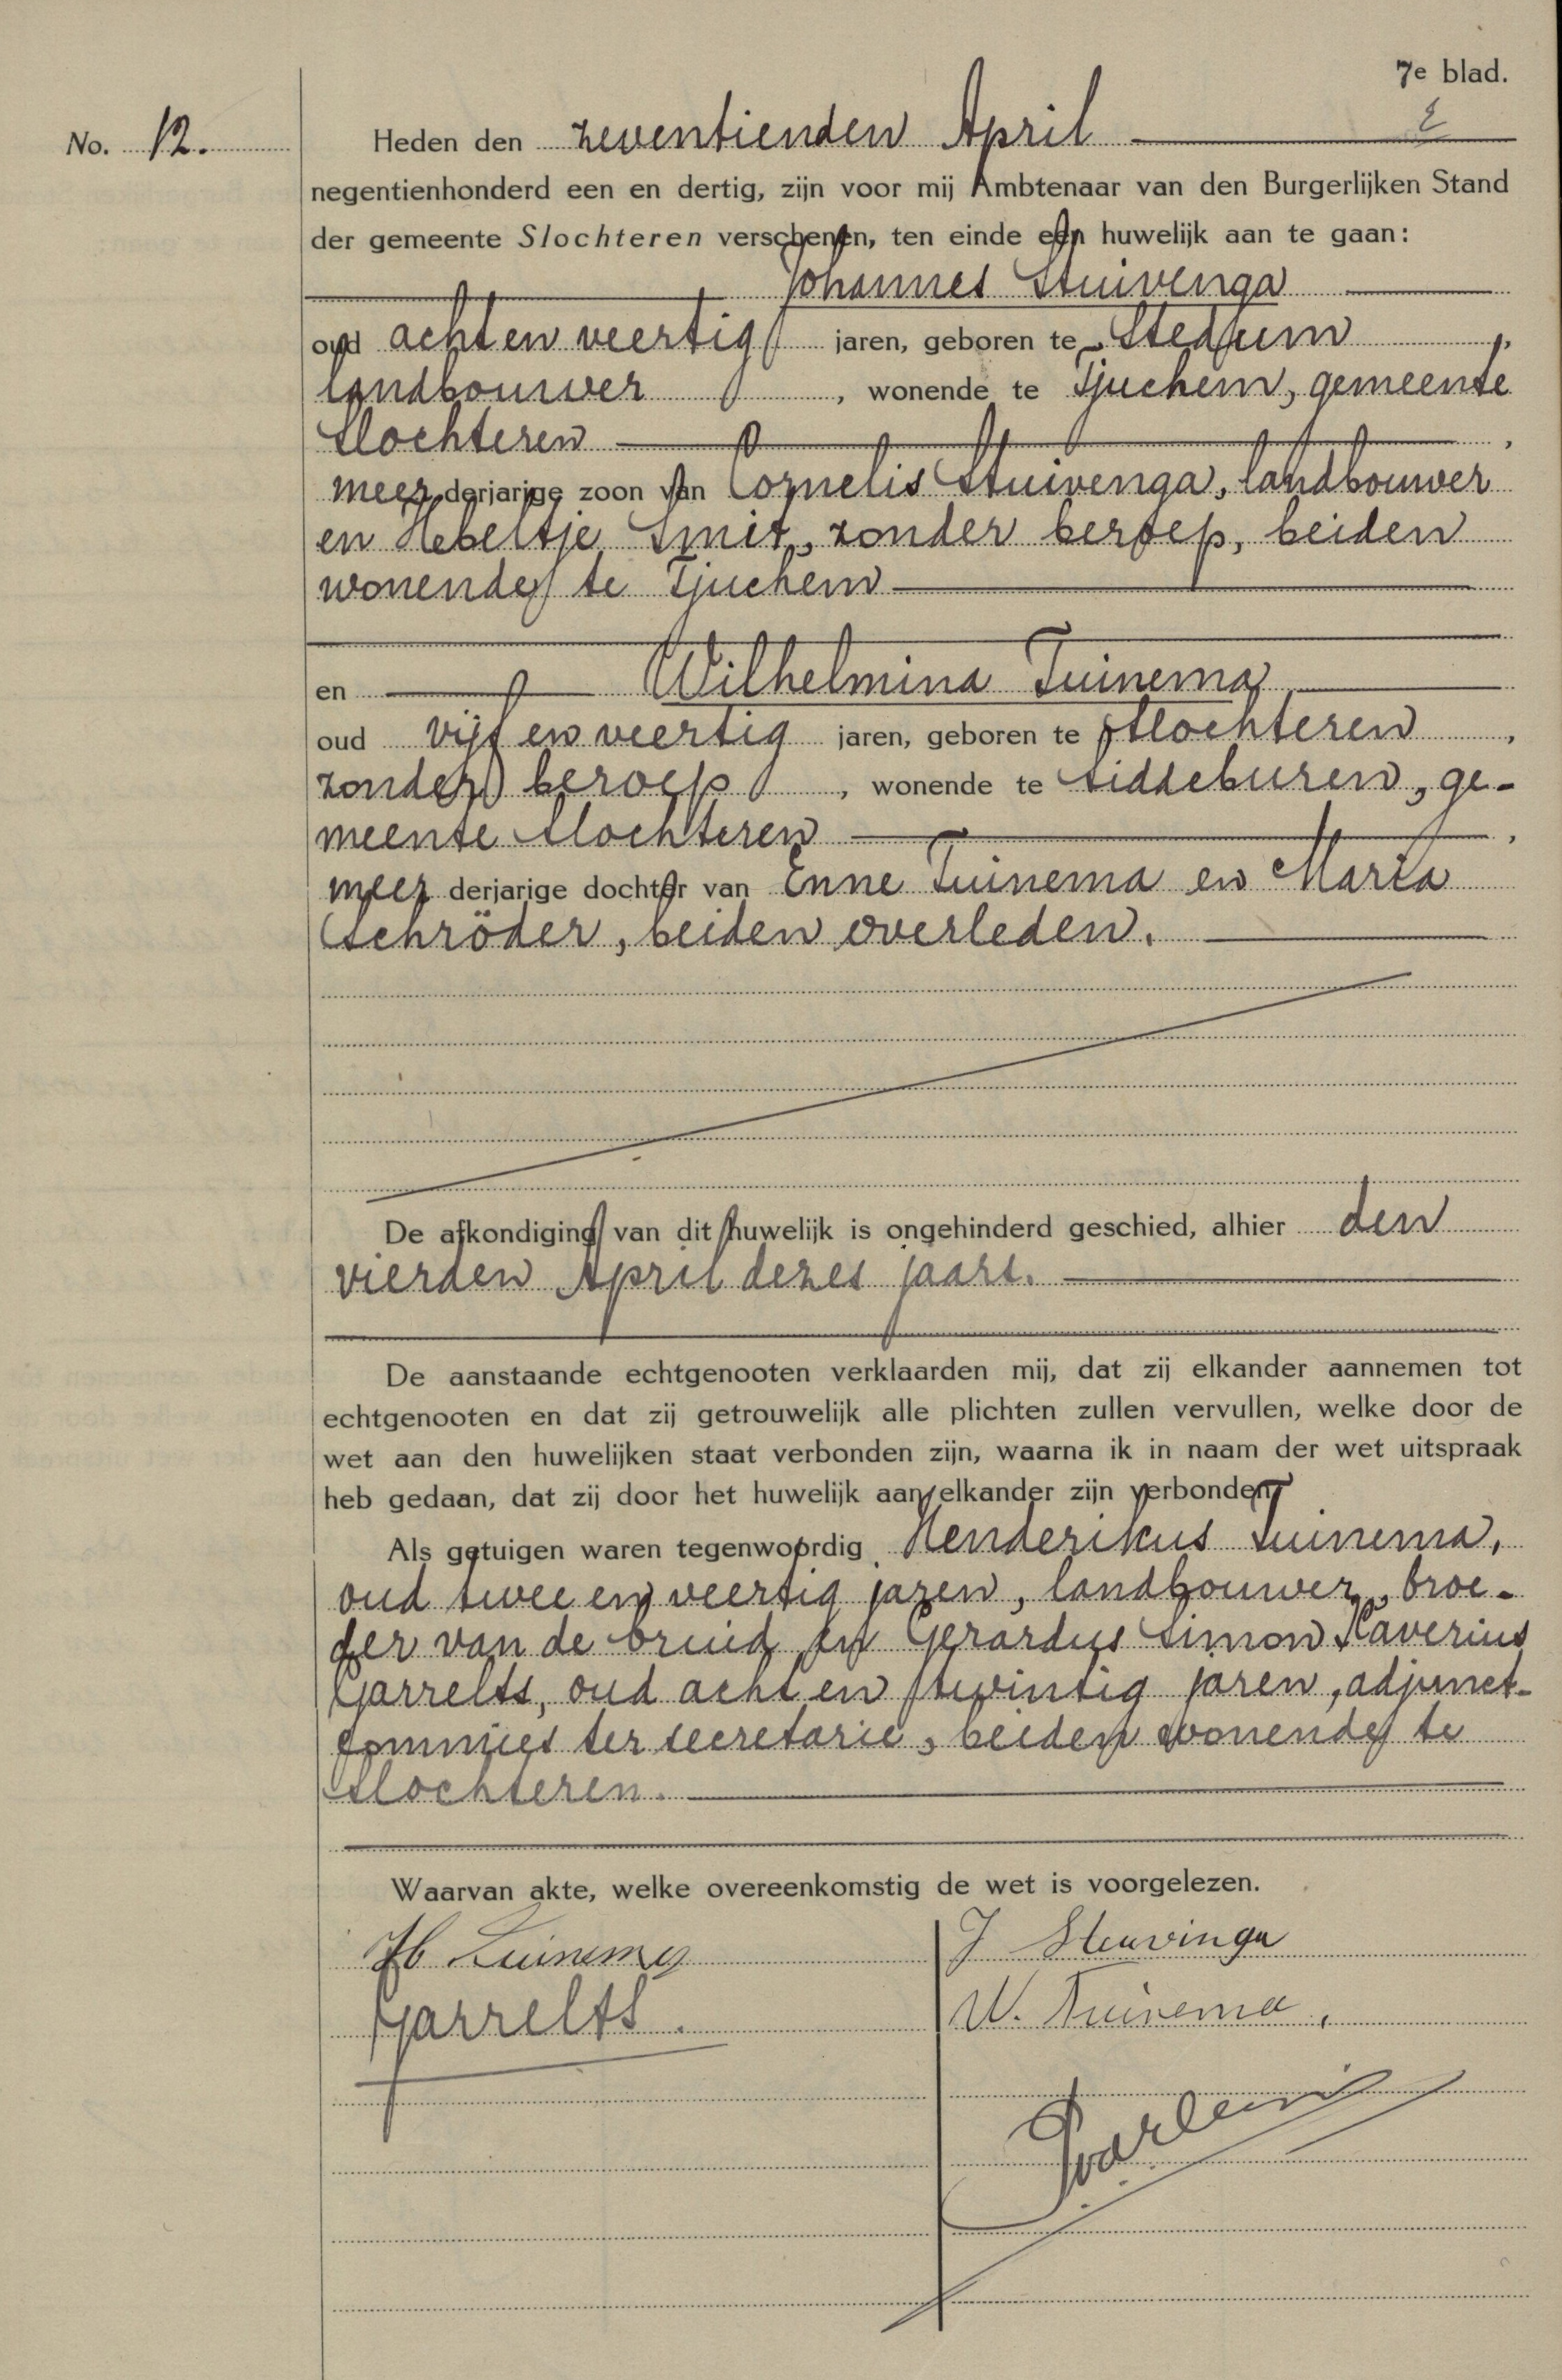 7e blad.
No. 12.
Heden den zeventienden April
negentienhonderd een en dertig, zijn voor mij Ambtenaar van den Burgerlijken Stand
der gemeente Slochteren verschenen, ten einde een huwelijk aan te gaan:
Johannes Stuivenga
oud acht en veertig jaren, geboren te Stedum,
landbouwer, wonende te Tjuchem, gemeente
Slochteren,
meerderjarige zoon van Cornelis Stuivenga, landbouwer
en Hebeltje Smit, zonder beroep, beiden
wonende te Tjuchem
en Wilhelmina Tuinema
oud vijf en veertig jaren, geboren te Slochteren,
zonder beroep, wonende te Siddeburen, ge-
meente Slochteren,
meerderjarige dochter van Enne Tuinema en Maria
Schröder, beiden overleden.
De afkondiging van dit huwelijk is ongehinderd geschied, alhier den
vierden April dezes jaars.
De aanstaande echtgenooten verklaarden mij, dat zij elkander aannemen tot
echtgenooten en dat zij getrouwelijk alle plichten zullen vervullen, welke door de
wet aan den huwelijken staat verbonden zijn, waarna ik in naam der wet uitspraak
heb gedaan, dat zij door het huwelijk aan elkander zijn verbonden.
Als getuigen waren tegenwoordig Henderikus Tuinema,
oud twee en veertig jaren, landbouwer, broe-
der van de bruid en Gerardus Simon Xaverius
Garrelts, oud acht en twintig jaren, adjunct-
commies ter secretarie, beiden wonende te
Slochteren.
Waarvan akte, welke overeenkomstig de wet is voorgelezen.
H Tuinema
J Stuivinga
Garrelts.
W. Tuinema,